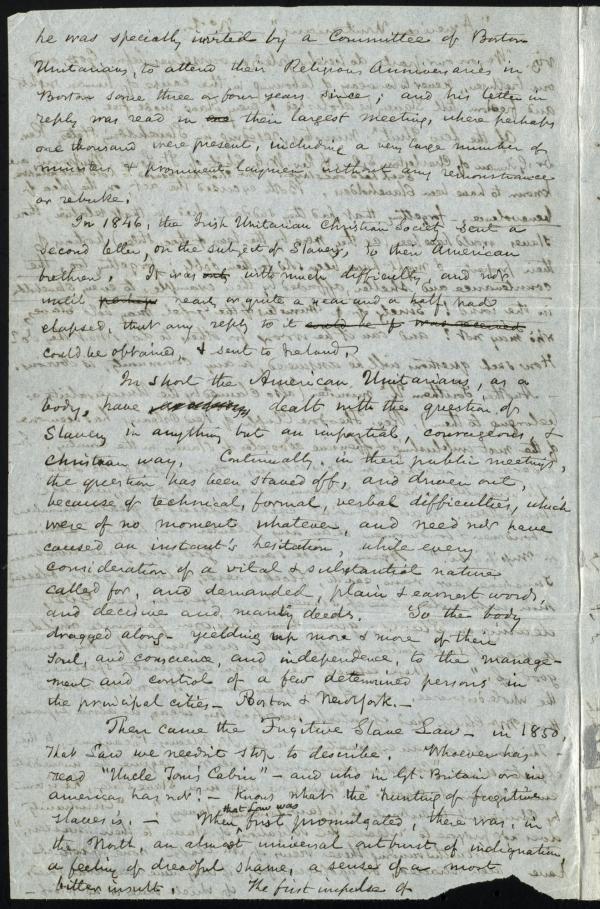 he was specially invited by a Committee of Boston
Unitarians, to attend their Religious Anniversaries in
Boston some three or four years since; and his letter in
reply was read in one their largest meeting, where perhaps
one thousand were present, including a very large number of
ministers & prominent laymen, without any remonstrance
or rebuke.
In 1846, the Irish Unitarian Christian Society sent a
second letter, on the subject of Slavery, to their American
brethren. It was only with much difficulty, and not
until perhaps nearly or quite a year and a half had
elapsed, that any reply to it could be if was received
could be obtained, & sent to Ireland.
In short the American Unitarians, as a
body, have dealt with the question of
Slavery in anything but an impartial, courageous &
christian way. Continually, in their public meetings,
the question has been staved off, and driven out,
because of technical, formal, verbal difficulties, which
were of no moment whatever, and need not have
caused an instant's hesitation, while every
consideration of a vital & substantial nature
called for, and demanded, plain & earnest words,
and decisive and manly deeds. So the body
dragged along - yielding up more & more of their
soul, and conscience, and independence, to the manage-
ment and control of a few determined persons in
the principal cities - Boston & New York. -
Then came the Fugitive Slave Law - in 1850,
That Law we needn't stop to describe. Whoever has
read "Uncle Tom's Cabin" - and who in Gt. Britain or in
America has not? - knows what the hunting of fugitive
slaves is. - When that Law was first promulgated, there was, in
the North, an almost universal outburst of indignation,
a feeling of dreadful shame, a sense of a most
bitter insult. The first impulse of